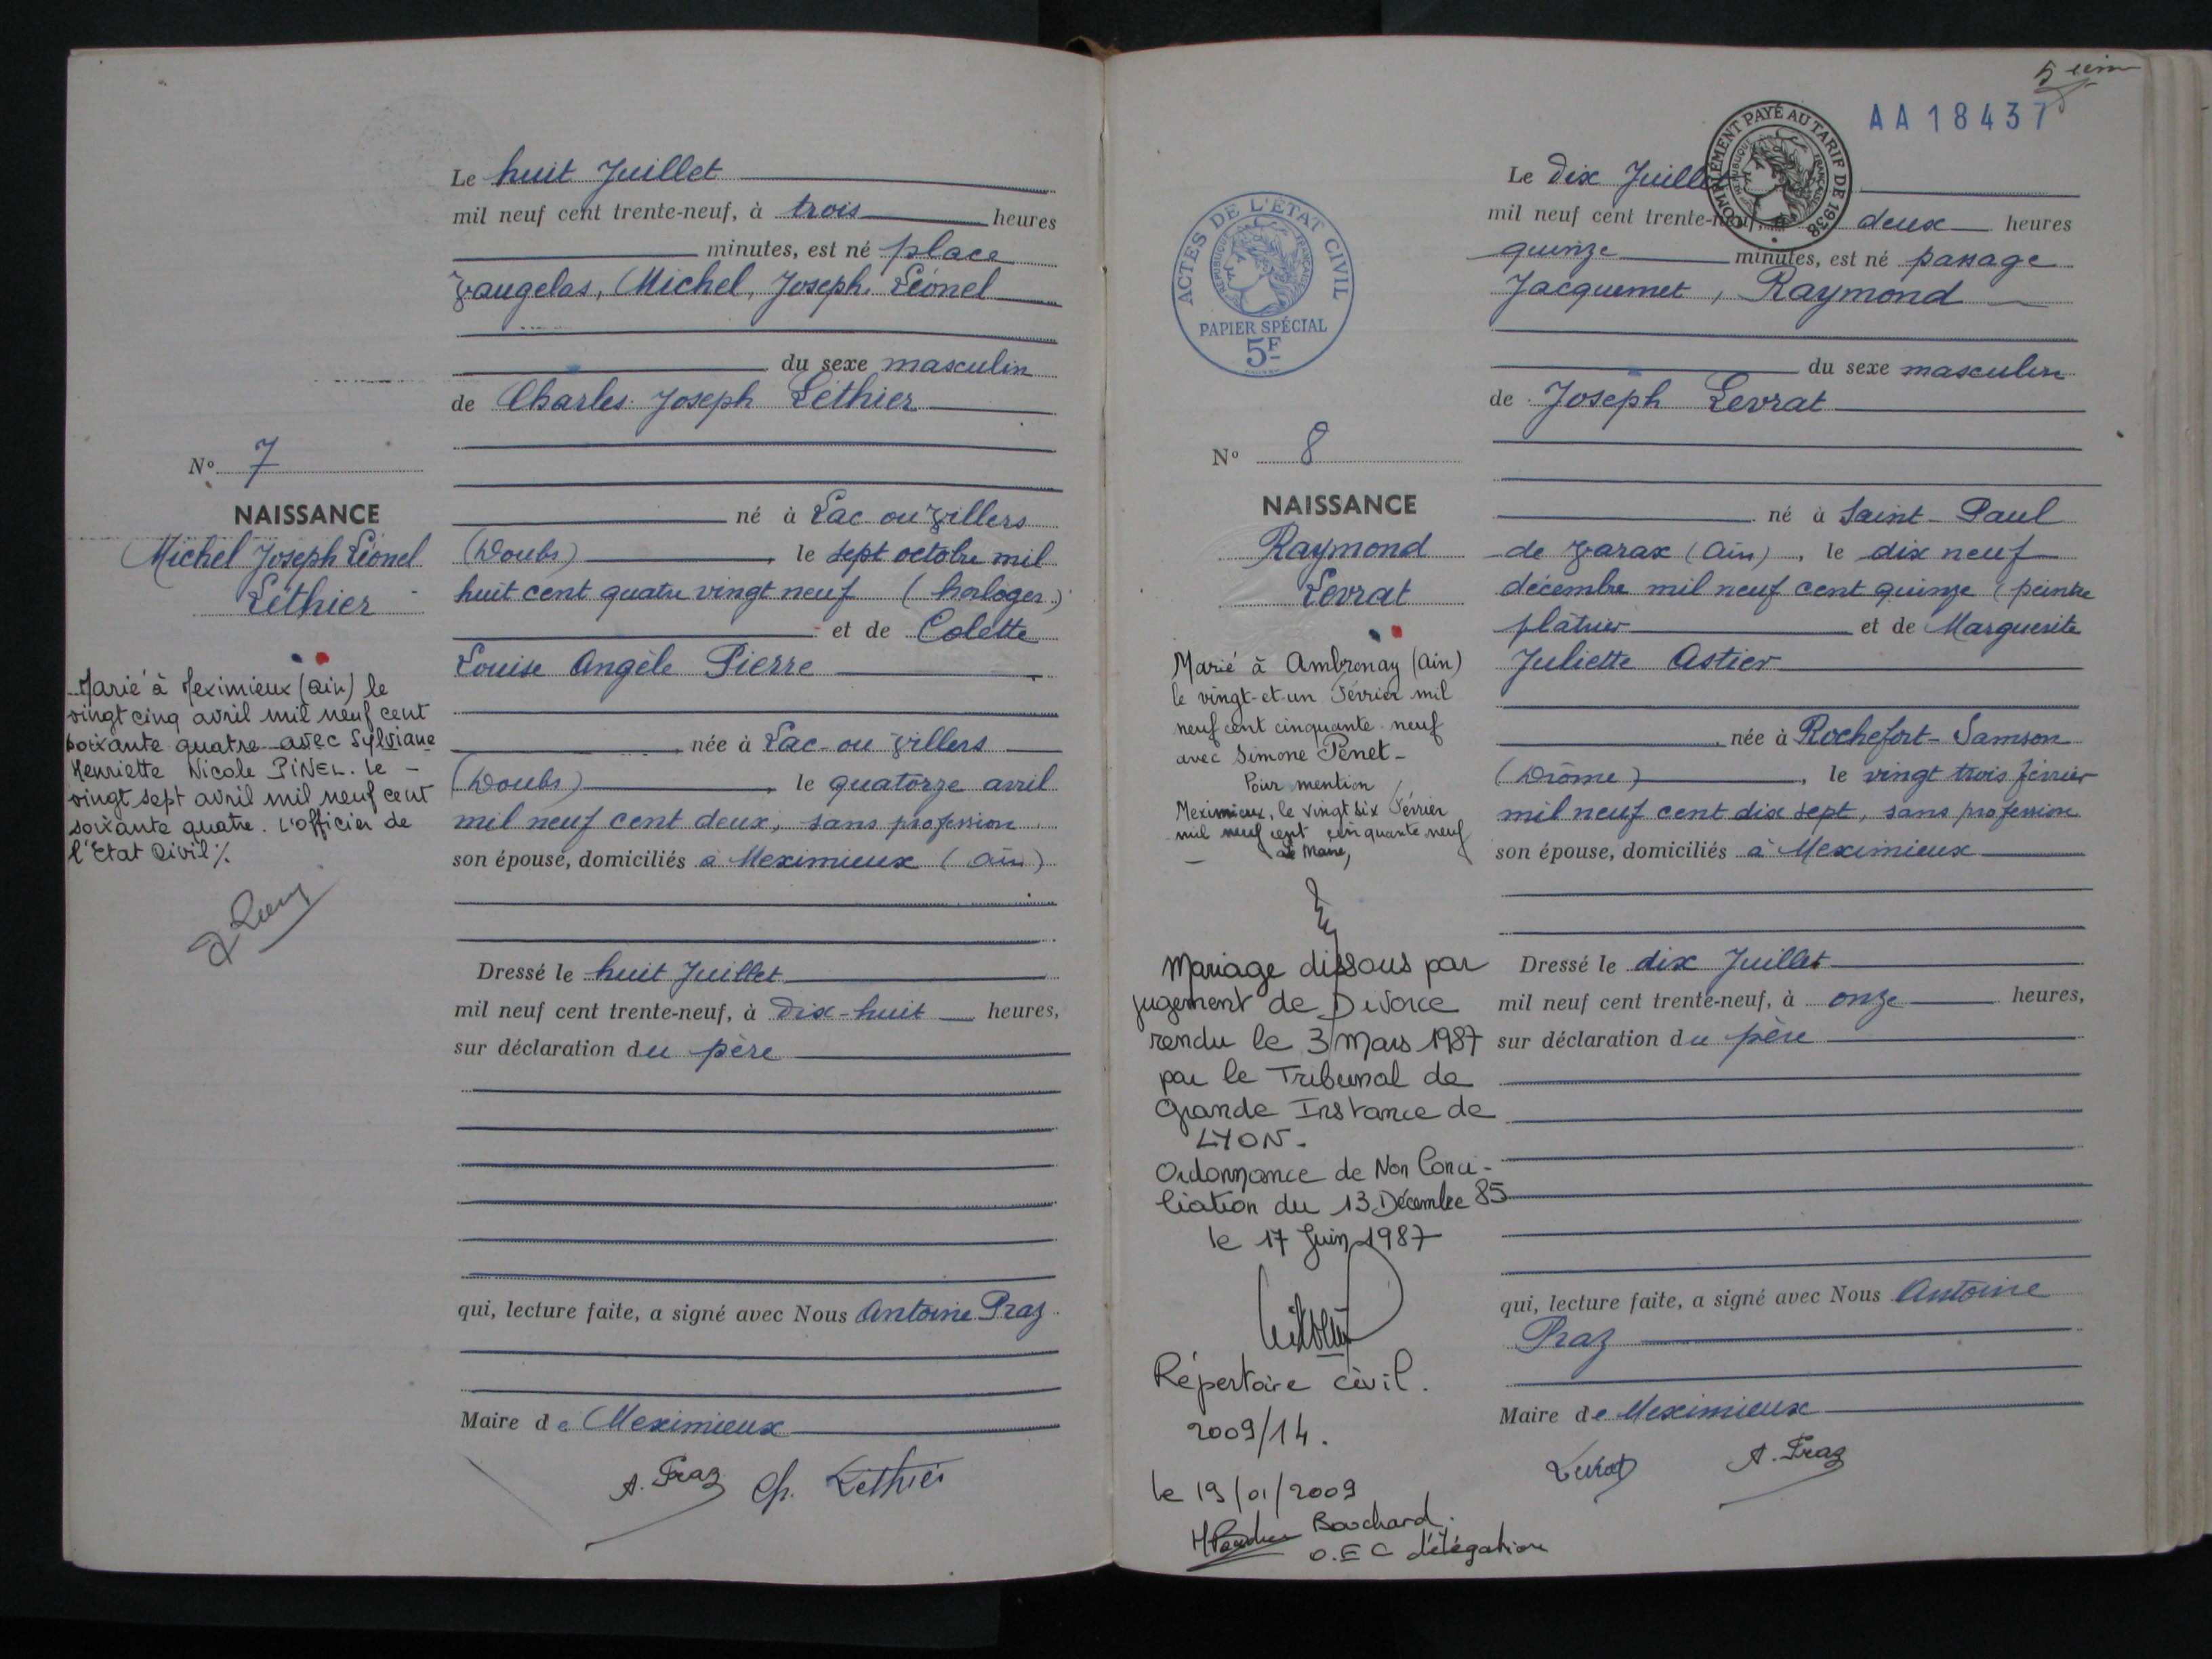 Le huit Juillet
mil neuf cent trente-neuf, à trois heures
minutes, est né place
Vaugelas, Michel, Joseph, Léonel
du sexe masculin
de Charles Joseph Léthier
né à Lac ou Villers
(Doubs), le sept octobre mil
huit cent quatre vingt neuf (horloger)
et de Colette
Louise Angèle Pierre
née à Lac ou Villers
(Doubs), le quatorze avril
mil neuf cent deux, sans profession
son épouse, domiciliés à Meximieux (Ain)
Dressé le huit Juillet
mil neuf cent trente-neuf, à Dix-huit heures,
sur déclaration du père
qui, lecture faite, a signé avec Nous Antoine Praz
Maire de Meximieux
A. Praz Ch. Léthier
No 7
NAISSANCE
Michel Joseph Léonel
Léthier
Marié à Meximieux (Ain) le
vingt cinq avril mil neuf cent
soixante quatre avec Sylviane
Henriette Nicole PINEL. Le -
vingt sept avril mil neuf cent
soixante quatre. L'officier de
l'Etat Civil %
AA18437
COMPLÉMENT PAYÉ AU TARIF DE 1938
RÉPUBLIQUE FRANÇAISE
ACTES DE L'ÉTAT CIVIL
RÉPUBLIQUE FRANÇAISE
PAPIER SPÉCIAL
5F
Le Dix Juillet
mil neuf cent trente-neuf, à deux heures
quinze minutes, est né passage
Jacquemet, Raymond
du sexe masculin
de Joseph Levrat
né à Saint-Paul
de Varax (Ain), le dix neuf
décembre mil neuf cent quinze (peintre
plâtrier et de Marguerite
Juliette Astier
née à Rochefort-Samson
(Drôme), le vingt trois février
mil neuf cent dix sept, sans profession
son épouse, domiciliés à Meximieux
Dressé le dix Juillet
mil neuf cent trente-neuf, à onze heures,
sur déclaration du père
qui, lecture faite, a signé avec Nous Antoine
Praz
Maire de Meximieux
Levrat A. Praz
No 8
NAISSANCE
Raymond
Levrat
Marié à Ambronay (Ain)
le vingt-et-un Février mil
neuf cent cinquante neuf
avec Simone Penet -
Pour mention
Meximieux, le vingt six Février
mil neuf cent cinquante neuf
Le Maire,
Mariage dissous par
jugement de Divorce
rendu le 3 Mars 1987
par le Tribunal de
Grande Instance de
LYON -
Ordonnance de Non Conci-
liation du 13 Décembre 85
le 17 Juin 1987
Répertoire civil.
2009/14.
le 19/01/2009
Bouchard.
O.E C délégation